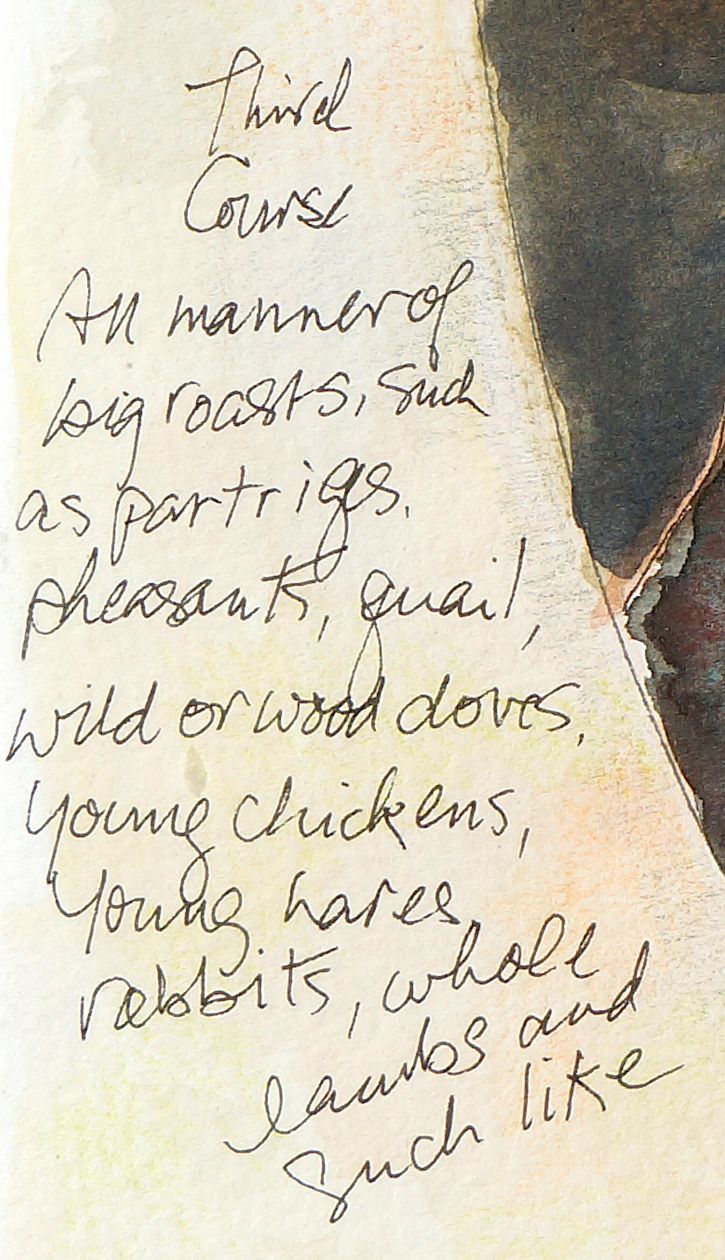 Third
Course
All manner of
big roasts, such
as partriges,
pheasants, quail,
wild or wood doves,
young chickens,
young hares,
rabbits, whole
lambs and
such like